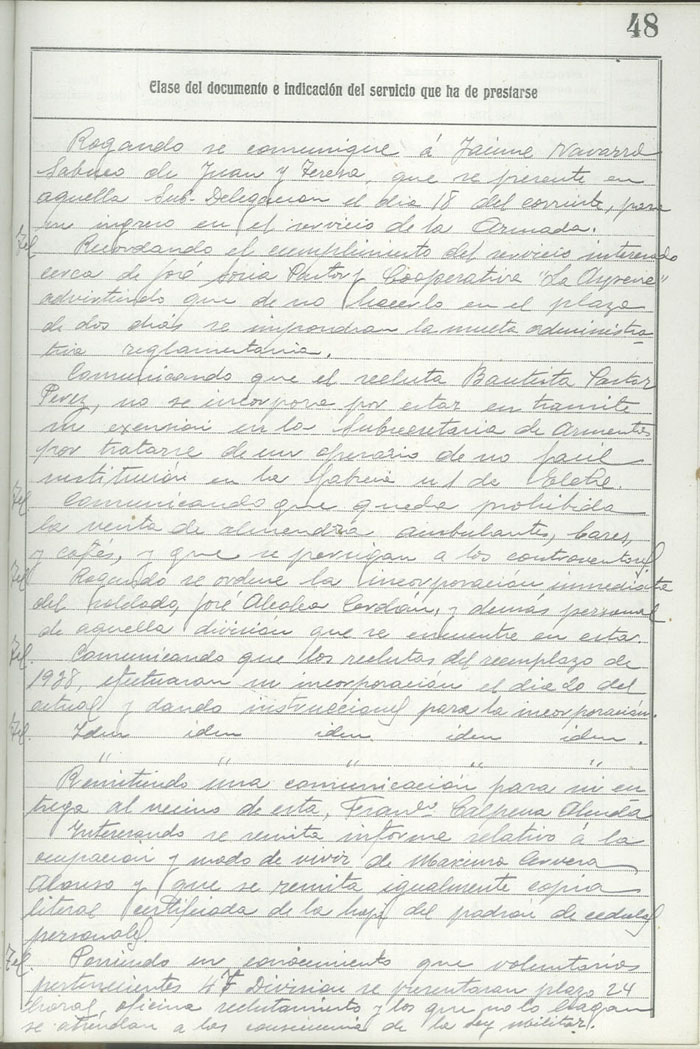 48
Clase del documento e indicación del servicio que ha de prestarse
Rogando se comunique á Jaime Navarro
Sabuco de Juan y Teresa, que se presente en
aquella Sub-Delegacion el dia 18 del corriente, para
su ingreso en el servicio de la Armada.
Tel. Recordando el cumplimiento del servicio interesado
cerca de José Soria Pastor y Cooperativa "La
advirtiendo que de no hacerlo en el plazo
de dos dias se impondran la multa administra-
tiva reglamentaria.
Comunicando que el recluta Bautista Pastor
Perez, no se incorpora por estar en tramite
su exension en la Subsecretaria de Armentos
por tratarse de un operario de no facil
sustitución en la fabrica nº 1 de Elche.
Tel. Comunicando que queda prohibida
la venta de almendra ambulantes, bares,
y cafés, y que se persigan a los contraventores
Tel. Rogando se ordene la incorporación inmediata
del soldado, José Alcolea Cordón, y demás personal
de aquella división que se encuentre en esta.
Tel. Comunicando que los reclutas del reemplazo de
1928, efectuaran su incorporación el dia 20 del
actual y dando instrucciones para la incorporación.
Tel. Iden iden iden. iden iden.
" " " " "
Remitiendo una comunicación para su en
trega al vecino de esta, Franco Calpena
Interesando se remita informe relativo á la
ocupación y modo de vivir de Maximo Cervera
Alonso y que se remita igualmente copia
literal certificada de la hoja del padrón de cedulas
personales.
Tel. Poniendo en conocimiento que voluntarios
pertenecientes 47 Division se presentaran plazo 24
horas, oficina reclutamiento y los que no lo hagan
se atendan a las consecuencia de la ley militar.